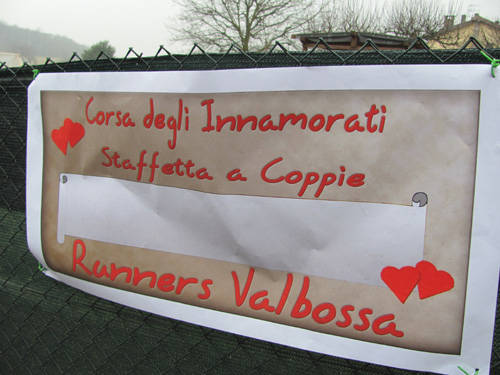 Corsa degli Innamorati
Staffetta a Coppie
Runners Valbossa